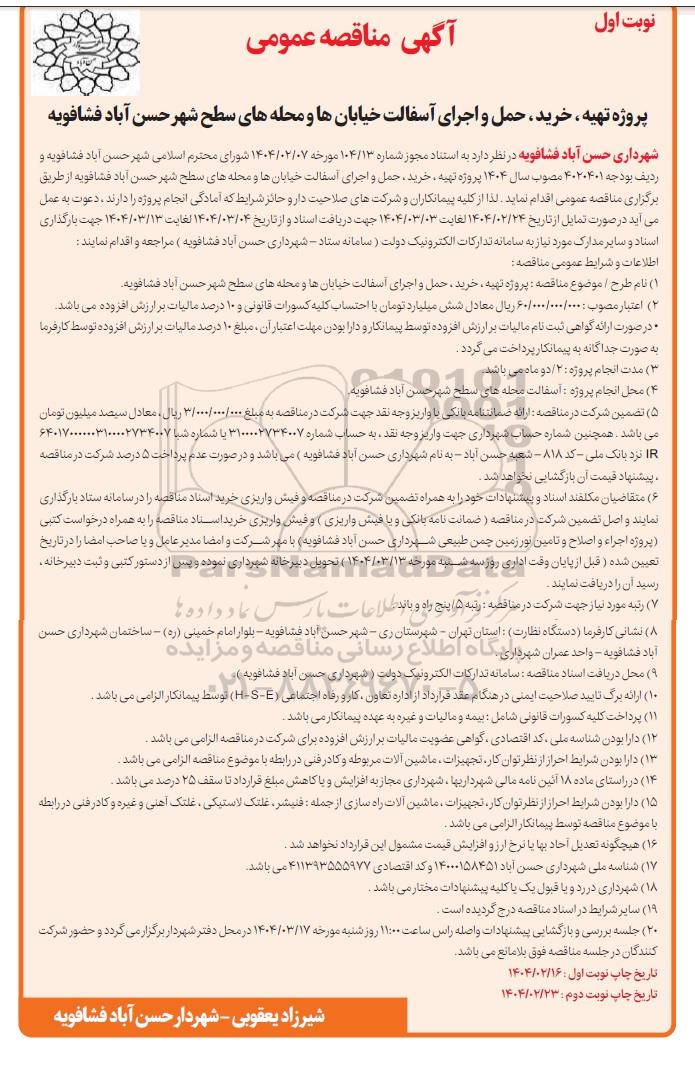 نوبت اول
آگهی مناقصه عمومی
پروژه تهیه ، خرید ، حمل و اجرای آسفالت خیابان ها و محله های سطح شهر حسن آباد فشافویه
شهرداری حسن آباد فشافویه در نظر دارد به استناد مجوز شماره ۱۰۴/۱۳ مورخه ۱۴۰۴/۰۲/۰۷ شورای محترم اسلامی شهر حسن آباد فشافویه و
ردیف بودجه ۴۰۲۰۴۰۱ مصوب سال ۱۴۰۴ پروژه تهیه ، خرید ، حمل و اجرای آسفالت خیابان ها و محله های سطح شهر حسن آباد فشافویه از طریق
برگزاری مناقصه عمومی اقدام نماید . لذا از کلیه پیمانکاران و شرکت های صلاحیت دار و حائز شرایط که آمادگی انجام پروژه را دارند ، دعوت به عمل
می آید در صورت تمایل از تاریخ ۱۴۰۴/۰۲/۲۴ لغایت ۱۴۰۴/۰۳/۰۳ جهت دریافت اسناد و از تاریخ ۱۴۰۴/۰۳/۰۴ لغایت ۱۴۰۴/۰۳/۱۳ جهت بارگذاری
اسناد و سایر مدارک مورد نیاز به سامانه تدارکات الکترونیک دولت ( سامانه ستاد – شهرداری حسن آباد فشافویه ) مراجعه و اقدام نمایند :
اطلاعات و شرایط عمومی مناقصه :
۱) نام طرح / موضوع مناقصه : پروژه تهیه ، خرید ، حمل و اجرای آسفالت خیابان ها و محله های سطح شهر حسن آباد فشافویه.
۲) اعتبار مصوب : ۶۰/۰۰۰/۰۰۰/۰۰۰ ریال معادل شش میلیارد تومان با احتساب کلیه کسورات قانونی و ۱۰ درصد مالیات بر ارزش افزوده می باشد .
• در صورت ارائه گواهی ثبت نام مالیات بر ارزش افزوده توسط پیمانکار و دارا بودن مهلت اعتبار آن ، مبلغ ۱۰ درصد مالیات بر ارزش افزوده توسط کارفرما
به صورت جداگانه به پیمانکار پرداخت می گردد .
۳) مدت انجام پروژه : ۲/دو ماه می باشد.
۴) محل انجام پروژه : آسفالت محله های سطح شهر حسن آباد فشافویه.
۵) تضمین شرکت در مناقصه : ارائه ضمانتنامه بانکی یا واریز وجه نقد جهت شرکت در مناقصه به مبلغ ۳/۰۰۰/۰۰۰/۰۰۰ ریال ، معادل سیصد میلیون تومان
می باشد . همچنین شماره حساب شهرداری جهت واریز وجه نقد ، به حساب شماره ۳۱۰۰۰۰۲۷۳۴۰۰۷ یا شماره شبا
IR نزد بانک ملی – کد ۸۱۸ – شعبه حسن آباد – به نام شهرداری حسن آباد فشافویه ) می باشد و در صورت عدم پرداخت ۵ درصد شرکت در مناقصه
، پیشنهاد قیمت آن بازگشایی نخواهد شد .
۶) متقاضیان مکلفند اسناد و پیشنهادات خود را به همراه تضمین شرکت در مناقصه و فیش واریزی خرید اسناد مناقصه را در سامانه ستاد بارگذاری
نمایند و اصل تضمین شرکت در مناقصه ( ضمانت نامه بانکی و یا فیش واریزی ) و فیش واریزی خرید اسناد مناقصه را به همراه درخواست کتبی
(پروژه اجراء و اصلاح و تامین نور زمین چمن طبیعی شهرداری حسن آباد فشافویه) با مهر شرکت و امضا مدیر عامل و یا صاحب امضا را در تاریخ
تعیین شده ( قبل از پایان وقت اداری روز سه شنبه مورخه ۱۴۰۴/۰۳/۱۳ ) تحویل دبیرخانه شهرداری نموده و پس از دستور کتبی و ثبت دبیرخانه ،
رسید آن را دریافت نمایند .
۷) رتبه مورد نیاز جهت شرکت در مناقصه : رتبه ۵/پنج راه و باند
۸) نشانی کارفرما (دستگاه نظارت) : استان تهران – شهرستان ری – شهر حسن آباد فشافویه – بلوار امام خمینی (ره) – ساختمان شهرداری حسن
آباد فشافویه – واحد عمران شهرداری .
۹) محل دریافت اسناد مناقصه : سامانه تدارکات الکترونیک دولت ( شهرداری حسن آباد فشافویه ).
۱۰) ارائه برگ تایید صلاحیت ایمنی در هنگام عقد قرارداد از اداره تعاون ، کار و رفاه اجتماعی (H-S-E) توسط پیمانکار الزامی می باشد .
۱۱) پرداخت کلیه کسورات قانونی شامل : بیمه و مالیات و غیره به عهده پیمانکار می باشد .
۱۲) دارا بودن شناسه ملی ، کد اقتصادی ، گواهی عضویت مالیات بر ارزش افزوده برای شرکت در مناقصه الزامی می باشد .
۱۳) دارا بودن شرایط احراز از نظر توان کار ، تجهیزات ، ماشین آلات مربوطه و کادر فنی در رابطه با موضوع مناقصه الزامی می باشد .
۱۴) در راستای ماده ۱۸ آئین نامه مالی شهرداریها ، شهرداری مجاز به افزایش و یا کاهش مبلغ قرارداد تا سقف ۲۵ درصد می باشد .
۱۵) دارا بودن شرایط احراز از نظر توان کار ، تجهیزات ، ماشین آلات راه سازی از جمله : فنیشر ، غلتک لاستیکی ، غلتک آهنی و غیره و کادر فنی در رابطه
با موضوع مناقصه توسط پیمانکار الزامی می باشد .
۱۶) هیچگونه تعدیل آحاد بها یا نرخ ارز و افزایش قیمت مشمول این قرارداد نخواهد شد .
۱۷) شناسه ملی شهرداری حسن آباد ۱۴۰۰۰۱۵۸۴۵۱ و کد اقتصادی ۴۱۱۳۹۳۵۵۵۹۷۷ می باشد.
۱۸) شهرداری در رد و یا قبول یک یا کلیه پیشنهادات مختار می باشد .
۱۹) سایر شرایط در اسناد مناقصه درج گردیده است .
۲۰) جلسه بررسی و بازگشایی پیشنهادات واصله راس ساعت ۱۱:۰۰ روز شنبه مورخه ۱۴۰۴/۰۳/۱۷ در محل دفتر شهردار برگزار می گردد و حضور شرکت
کنندگان در جلسه مناقصه فوق بلامانع می باشد.
تاریخ چاپ نوبت اول : ۱۴۰۴/۰۲/۱۶
تاریخ چاپ نوبت دوم : ۱۴۰۴/۰۲/۲۳
شیرزاد یعقوبی – شهردار حسن آباد فشافویه
ParsNamadData
مرکز فرآوری اطلاعات پارس نماد داده ها
پایگاه اطلاع رسانی مناقصه و مزایده
۰۲۱-۸۸۳۴۹۶۷۰-۵